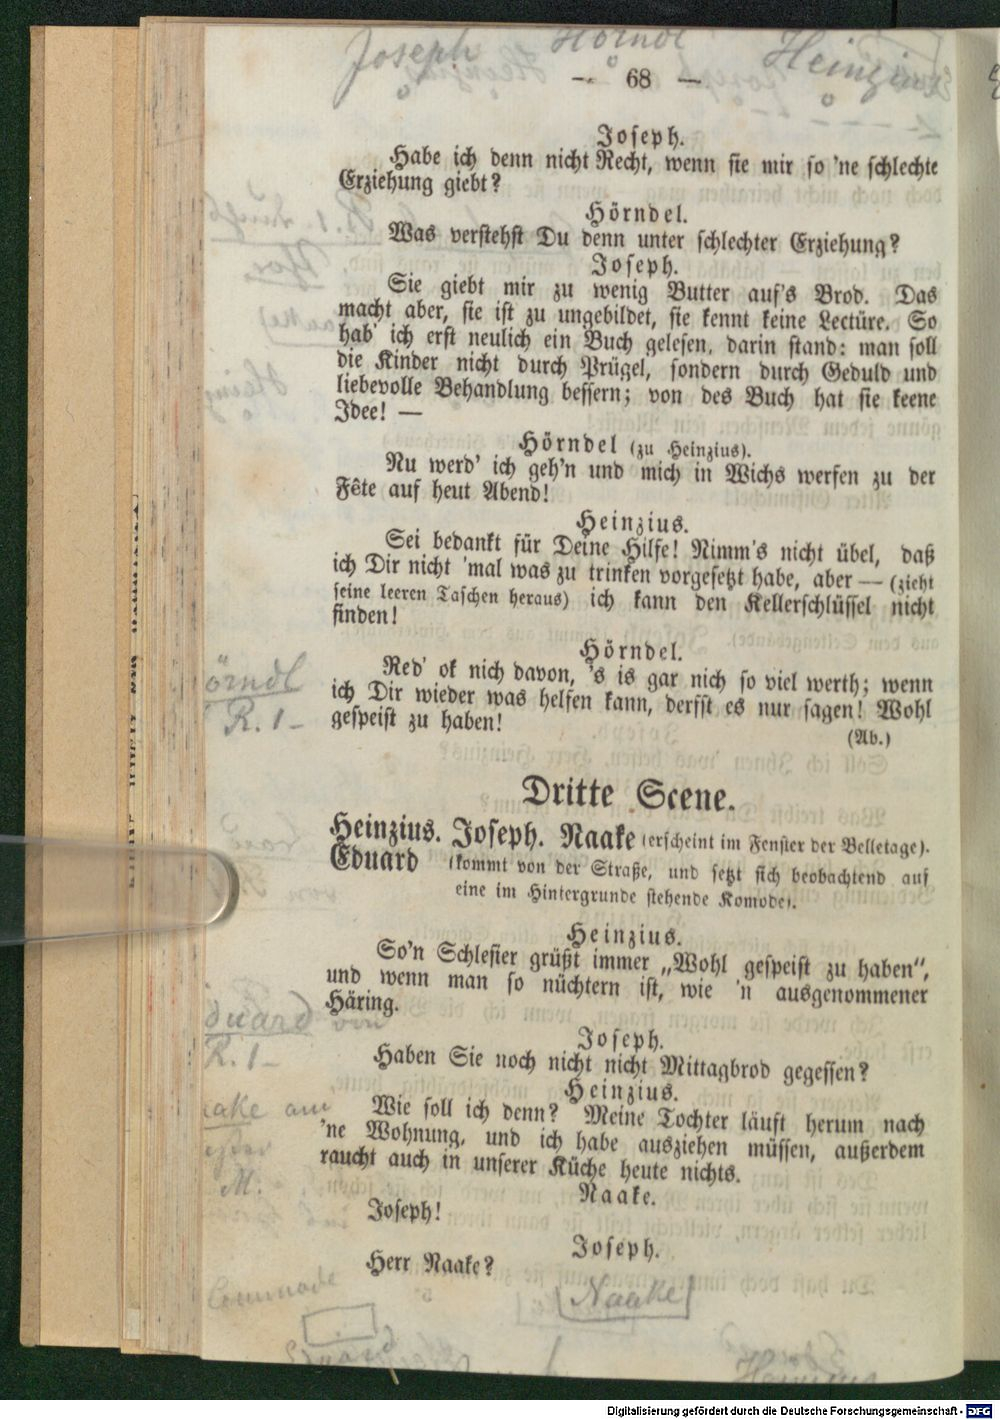 Joseph Hörndl Heinzius
— 68 —
Joseph.
Habe ich denn nicht Recht, wenn sie mir so 'ne schlechte
Erziehung giebt?
Hörndel.
Was verstehst Du denn unter schlechter Erziehung?
Joseph.
Sie giebt mir zu wenig Butter auf's Brod. Das
macht aber, sie ist zu ungebildet, sie kennt keine Lectüre. So
hab' ich erst neulich ein Buch gelesen, darin stand: man soll
die Kinder nicht durch Prügel, sondern durch Geduld und
liebevolle Behandlung bessern; von des Buch hat sie keene
Idee! —
Hörndel (zu Heinzius).
Nu werd' ich geh'n und mich in Wichs werfen zu der
Fête auf heut Abend!
Heinzius.
Sei bedankt für Deine Hilfe! Nimm's nicht übel, daß
ich Dir nicht 'mal was zu trinken vorgesetzt habe, aber — (zieht
seine leeren Taschen heraus) ich kann den Kellerschlüssel nicht
finden!
Hörndel.
Red' ok nich davon, 's is gar nich so viel werth; wenn
ich Dir wieder was helfen kann, derfst es nur sagen! Wohl
gespeist zu haben!
(Ab.)
örndl
R. 1-
Dritte Scene.
Heinzius. Joseph. Naake (erscheint im Fenster der Belletage).
Eduard (kommt von der Straße, und setzt sich beobachtend auf
eine im Hintergrunde stehende Komode).
Heinzius.
So'n Schlesier grüßt immer „Wohl gespeist zu haben“,
und wenn man so nüchtern ist, wie 'n ausgenommener
Häring.
duard von
R. 1-
Joseph.
Haben Sie noch nicht nicht Mittagbrod gegessen?
Heinzius.
Wie soll ich denn? Meine Tochter läuft herum nach
'ne Wohnung, und ich habe ausziehen müssen, außerdem
raucht auch in unserer Küche heute nichts.
aake am
M.
Naake.
Joseph!
Joseph.
Herr Naake?
Commode
Naake
Heinzius
Digitalisierung gefördert durch die Deutsche Forschungsgemeinschaft - DFG